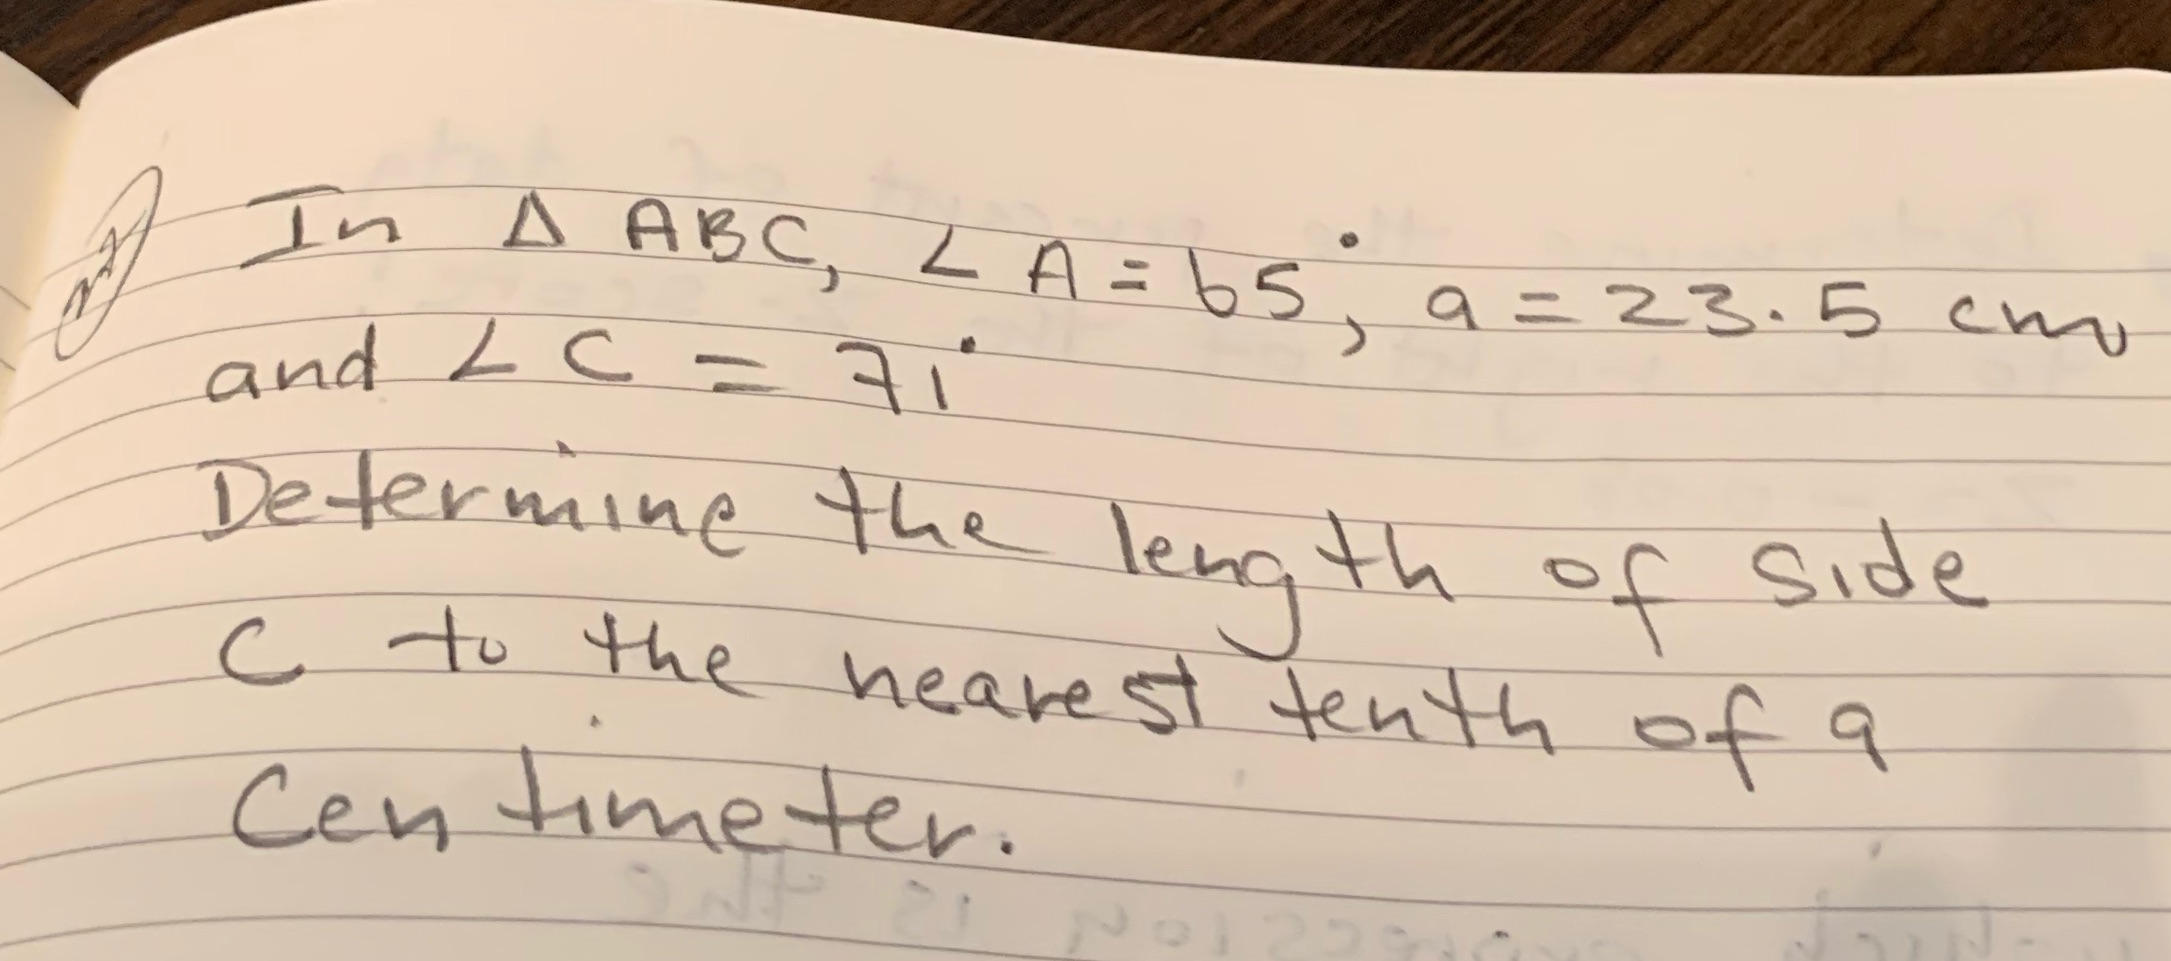 In Δ ABC, ∠ A = 65°, a = 23.5 cm
and ∠ C = 71°
Determine the length of side
C to the nearest tenth of a
Centimeter.